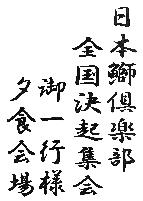 日本鰤倶楽部
全国決起集会
御一行様
夕食会場